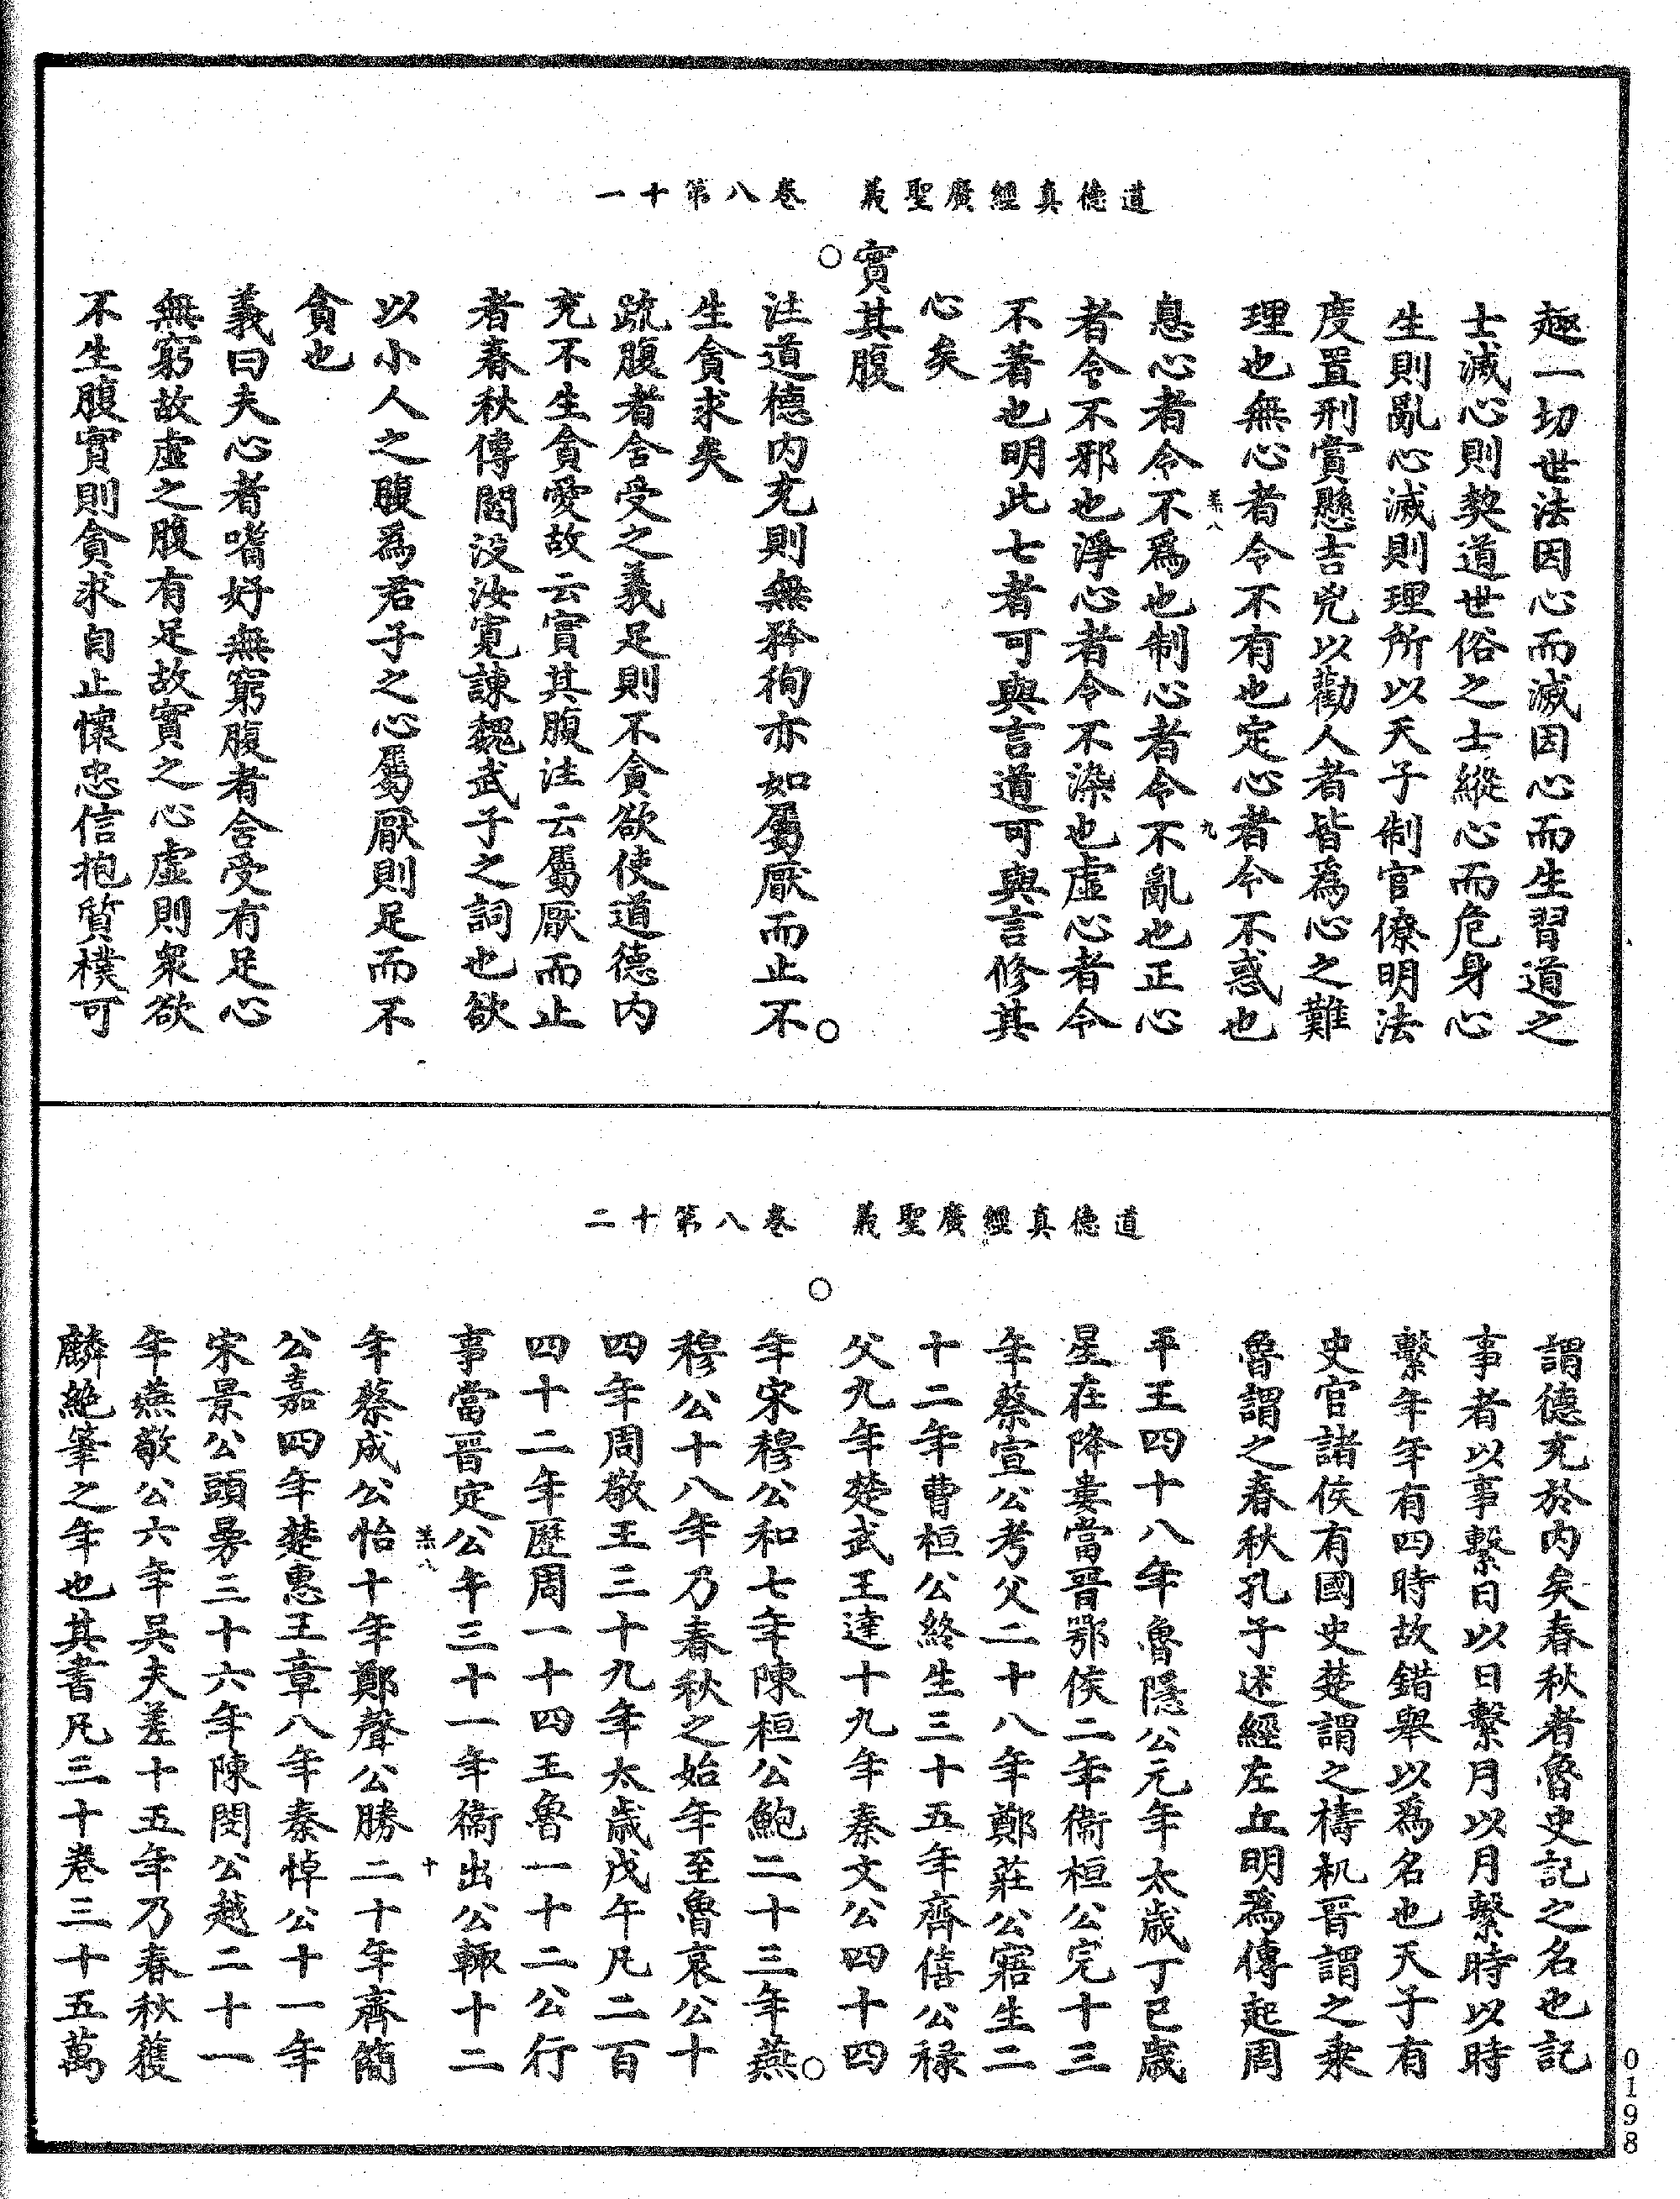 道德真經廣聖義　卷八第十一
趣一切世法因心而滅因心而生習道之
士滅心則契道世俗之士縱心而危身心
生則亂心滅則理所以天子制官僚明法
度置刑賞懸吉兇以勸人者皆爲心之難
理也無心者令不有也定心者令不惑也
羔八
九
息心者令不爲也制心者令不亂也正心
者令不邪也淨心者令不染也虛心者令
不著也明此七者可與言道可與言修其
心矣
實其腹
注道德內充則無矜徇亦如屬厭而止不
生貪求矣
疏腹者含受之義足則不貪欲使道德內
充不生貪愛故云實其腹注云屬厭而止
者春秋傳閻沒汝寬諫魏武子之詞也欲
以小人之腹爲君子之心屬厭則足而不
貪也
義曰夫心者嗜好無窮腹者含受有足心
無窮故虛之腹有足故實之心虛則衆欲
不生腹實則貪求自止懷忠信抱質樸可
道德真經廣聖義　卷八第十二
謂德充於內矣春秋者魯史記之名也記
事者以事繫日以日繫月以月繫時以時
繫年年有四時故錯舉以爲名也天子有
史官諸侯有國史楚謂之檮杌晉謂之乘
魯謂之春秋孔子述經左丘明爲傳起周
平王四十八年魯隱公元年太歲丁巳歲
星在降婁當晉鄂侯二年衞桓公完十三
年蔡宣公考父二十八年鄭莊公寤生二
十二年曹桓公終生三十五年齊僖公祿
父九年楚武王達十九年秦文公四十四
年宋穆公和七年陳桓公鮑二十三年燕
穆公十八年乃春秋之始年至魯哀公十
四年周敬王三十九年太歲戊午凡二百
四十二年歷周一十四王魯一十二公行
事當晉定公午三十一年衞出公輒十二
羔八
十
年蔡成公怡十年鄭聲公勝二十年齊簡
公嘉四年楚惠王章八年秦悼公十一年
宋景公頭曼三十六年陳閔公越二十一
年燕敬公六年吳夫差十五年乃春秋獲
麟絕筆之年也其書凡三十卷三十五萬
0198